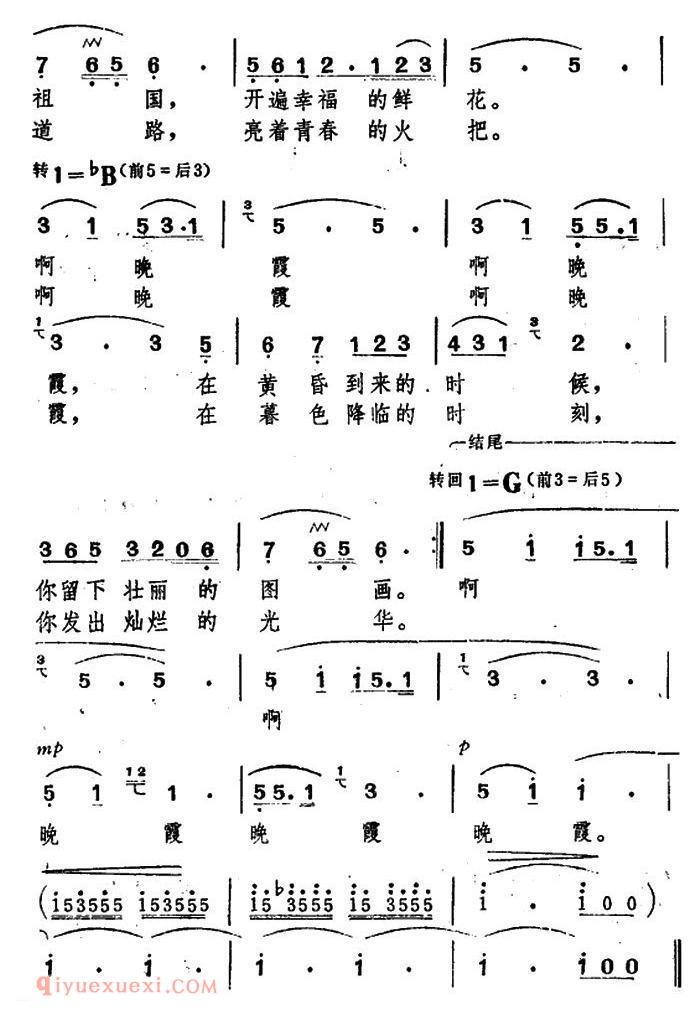 7 6 5 6 · | 5 6 1 2 · 1 2 3 | 5 · 5 · |
祖 国， 开遍幸福 的鲜 花。
道 路， 亮着青春 的火 把。
转1=♭B(前5=后3)
3 1 5 3·1 | 3 5 · 5 · | 3 1 5 5·1 |
啊 晚 霞 啊 晚
啊 晚 霞 啊 晚
1 3 · 3 5 | 6 7 1 2 3 | 4 3 1 3 2 · |
霞， 在 黄 昏 到来的 时 候，
霞， 在 暮 色 降临的 时 刻，
结尾
转回1=G(前3=后5)
3 6 5 3 2 0 6 | 7 6 5 6 · :‖ 5 1 1 5·1 |
你留下 壮丽 的 图 画。 啊
你发出 灿烂 的 光 华。
3 5 · 5 · | 5 1 1 5·1 | 1 3 · 3 · |
啊
mp p
5 1 12 1 · | 5 5·1 1 3 · | 5 1 1 · |
晚 霞 晚 霞 晚 霞。
(153555 153555 | 15♭3555 15 3555 | 1 · 1 0 0)
1 · 1 · | 1 · 1 · | 1 · 1 · | 1 · 1 0 0 ‖
qiyuexuexi.com